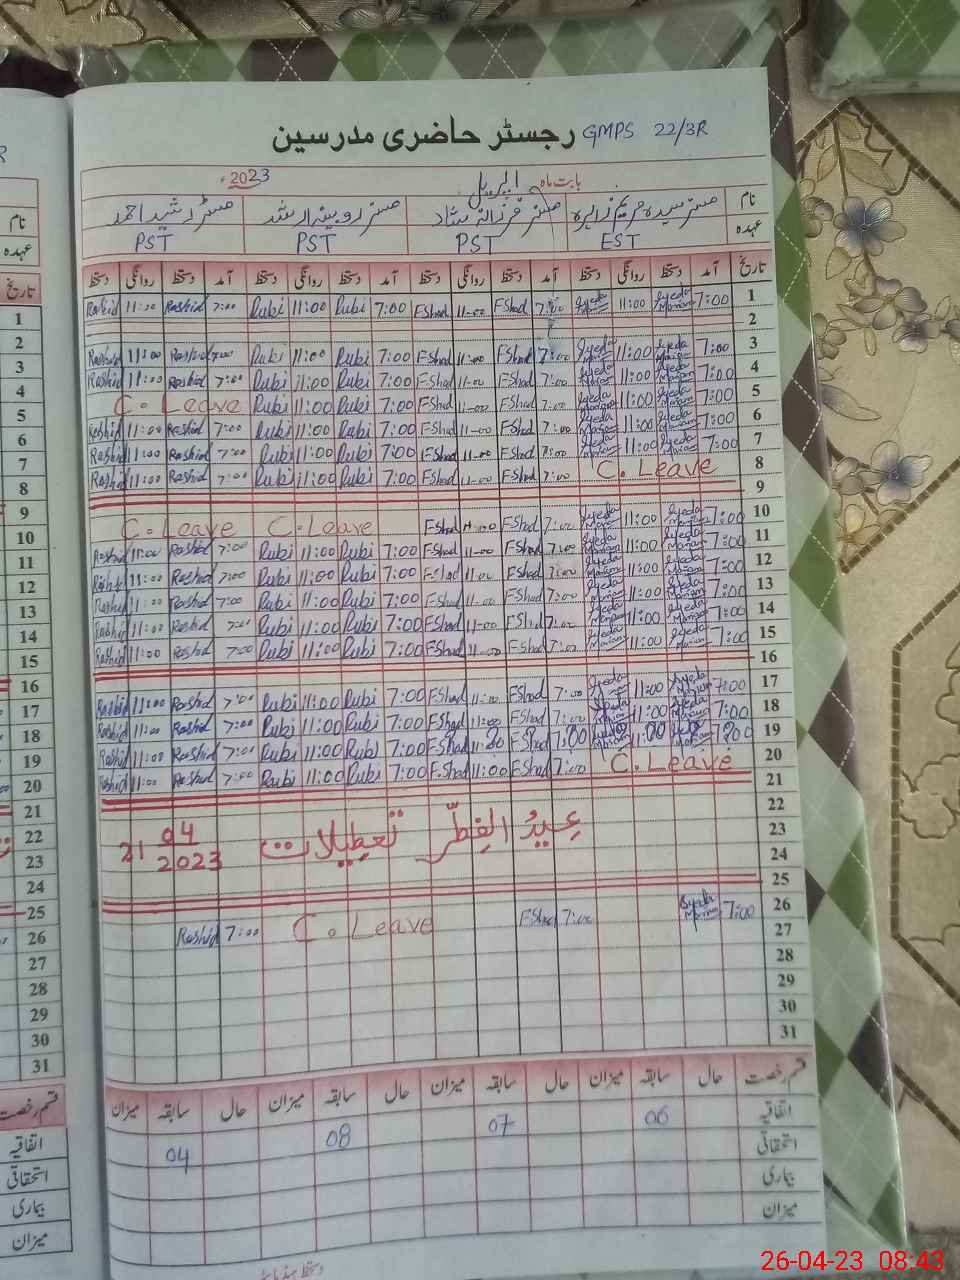 رجسٹر حاضری مدرسین GMPS 22/3R
بابت ماہ اپریل 2023ء
نام مسز سیدہ مریم زہرہ مسز فرزانہ شاد مسز روبینہ ارشد مسٹر رشید احمد
عہدہ EST PST PST PST
تاریخ آمد دستخط روانگی دستخط آمد دستخط روانگی دستخط آمد دستخط روانگی دستخط آمد دستخط روانگی دستخط
1 7:00 Syeda Mariam 11:00 Syeda Mariam 7:00 FShad 11-00 FShad 7:00 Rubi 11:00 Rubi 7:00 Rashid 11:00 Rashid
2
3 7:00 Syeda Mariam 11:00 Syeda Mariam 7:00 FShad 11-00 FShad 7:00 Rubi 11:00 Rubi 7:00 Rashid 11:00 Rashid
4 7:00 Syeda Mariam 11:00 Syeda Mariam 7:00 FShad 11-00 FShad 7:00 Rubi 11:00 Rubi 7:00 Rashid 11:00 Rashid
5 7:00 Syeda Mariam 11:00 Syeda Mariam 7:00 FShad 11-00 FShad 7:00 Rubi 11:00 Rubi C. Leave
6 7:00 Syeda Mariam 11:00 Syeda Mariam 7:00 FShad 11-00 FShad 7:00 Rubi 11:00 Rubi 7:00 Rashid 11:00 Rashid
7 7:00 Syeda Mariam 11:00 Syeda Mariam 7:00 FShad 11-00 FShad 7:00 Rubi 11:00 Rubi 7:00 Rashid 11:00 Rashid
8 C. Leave 7:00 FShad 11-00 FShad 7:00 Rubi 11:00 Rubi 7:00 Rashid 11:00 Rashid
9
10 7:00 Syeda Mariam 11:00 Syeda Mariam 7:00 FShad 11:00 FShad C. Leave C. Leave
11 7:00 Syeda Mariam 11:00 Syeda Mariam 7:00 FShad 11-00 FShad 7:00 Rubi 11:00 Rubi 7:00 Rashid 11:00 Rashid
12 7:00 Syeda Mariam 11:00 Syeda Mariam 7:00 FShad 11:00 FShad 7:00 Rubi 11:00 Rubi 7:00 Rashid 11:00 Rashid
13 7:00 Syeda Mariam 11:00 Syeda Mariam 7:00 FShad 11-00 FShad 7:00 Rubi 11:00 Rubi 7:00 Rashid 11:00 Rashid
14 7:00 Syeda Mariam 11:00 Syeda Mariam 7:00 FShad 11-00 FShad 7:00 Rubi 11:00 Rubi 7:00 Rashid 11:00 Rashid
15 7:00 Syeda Mariam 11:00 Syeda Mariam 7:00 FShad 11-00 FShad 7:00 Rubi 11:00 Rubi 7:00 Rashid 11:00 Rashid
16
17 7:00 Syeda Mariam 11:00 Syeda 7:00 FShad 11:00 FShad 7:00 Rubi 11:00 Rubi 7:00 Rashid 11:00 Rashid
18 7:00 Syeda Mariam 11:00 Syeda Mariam 7:00 FShad 11:00 FShad 7:00 Rubi 11:00 Rubi 7:00 Rashid 11:00 Rashid
19 7:00 Syeda Mariam 11:00 Syeda Mariam 7:00 FShad 11:00 FShad 7:00 Rubi 11:00 Rubi 7:00 Rashid 11:00 Rashid
20 C. Leave 7:00 FShad 11:00 F.Shad 7:00 Rubi 11:00 Rubi 7:00 Rashid 11:00 Rashid
21
22
23 عِیدُ الفِطّر تعطِیلات 21 04/2023
24
25
26 7:00 Syeda Mariam 7:00 FShad C. Leave 7:00 Rashid
27
28
29
30
31
قسم رخصت حال سابقہ میزان حال سابقہ میزان حال سابقہ میزان حال سابقہ میزان
اتفاقیہ 06 07 08 04
استحقاقی
بیماری
میزان
نام
عہدہ
تاریخ
1
2
3
4
5
6
7
8
9
10
11
12
13
14
15
16
17
18
19
20
21
22
23
24
25
26
27
28
29
30
31
قسم رخصت
اتفاقیہ
استحقاقی
بیماری
میزان
26-04-23 08:43